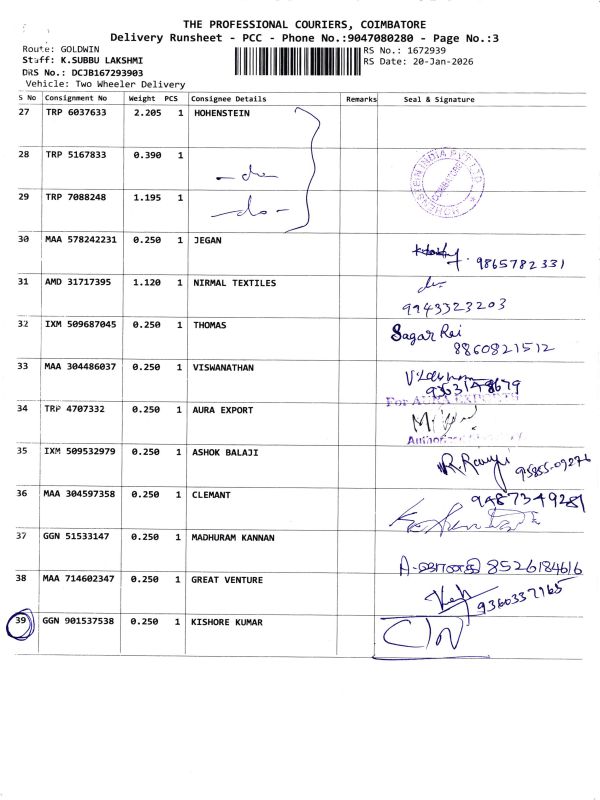 THE PROFESSIONAL COURIERS, COIMBATORE
Delivery Runsheet - PCC - Phone No.:9047080280 - Page No.:3
Route: GOLDWIN
RS No.: 1672939
Staff: K.SUBBU LAKSHMI
RS Date: 20-Jan-2026
DRS No.: DCJB167293903
Vehicle: Two Wheeler Delivery
S No Consignment No Weight PCS Consignee Details Remarks Seal & Signature
27 TRP 6037633 2.205 1 HOHENSTEIN
28 TRP 5167833 0.390 1 HOHENSTEIN INDIA PVT LTD COIMBATORE
29 TRP 7088248 1.195 1 -do-
30 MAA 578242231 0.250 1 JEGAN 9865782331
31 AMD 31717395 1.120 1 NIRMAL TEXTILES
9943323203
32 IXM 509687045 0.250 1 THOMAS Sagar Rai
8860821512
33 MAA 304486037 0.250 1 VISWANATHAN
9363148679
For AURA EXPORTS
34 TRP 4707332 0.250 1 AURA EXPORT
35 IXM 509532979 0.250 1 ASHOK BALAJI 95855-09276
36 MAA 304597358 0.250 1 CLEMANT 9487349281
37 GGN 51533147 0.250 1 MADHURAM KANNAN
8526184616
38 MAA 714602347 0.250 1 GREAT VENTURE
9360337165
39 GGN 901537538 0.250 1 KISHORE KUMAR